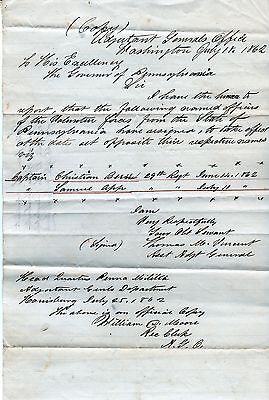 (Copy)
Adjutant Generals Office
Washington July 18, 1862
To His Excellency
The Governor of Pennsylvania
Sir
I have the honor to
report, that the following named officers
of the Volunteer forces from the State of
Pennsylvania have resigned, to take effect
at the dates set opposite their respective names
Viz
" " " " " " "
Captain Christian 29th Regt June 14, 1862
" Samuel App " July 11 "
" " " " " " "
I am
Very Respectfully
Your Obt Servant
(Signed) Thomas M. Vincent
Asst Adjt General
Head Quarters Penna Militia
Adjutant Genls Department
Harrisburg July 25, 1862
The above is an official Copy
William B. Moore
Rec Clerk
A. G. O.